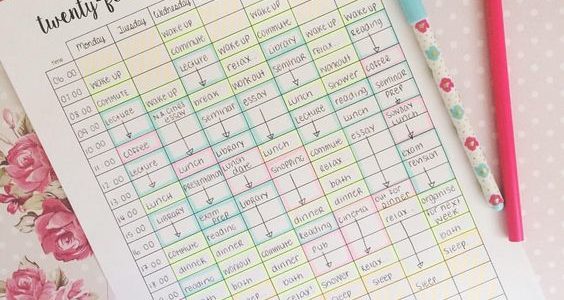 twenty-f
Monday
Tuesday
Wednesday
Time
06 00
07 00
08 00
09 00
10 00
11 00
12 00
13 00
14 00
15 00
16 00
17 00
18 00
wake up
commute
lecture
coffee
lecture
lunch
library
commute
dinner
reading
wake up
essay
lunch
presentation
exam prep
reading
dinner
workout
bath
wake up
commute
lecture
break
seminar
library
lunch date
library
commute
dinner
wake up
relax
workout
essay
lunch
shopping
dinner
reading
pub
wake up
commute
library
seminar
lunch
lecture
commute
relax
bath
dinner
reading
shower
sleep
wake up
relax
workout
shower
reading
lunch
essay
cinema
relax
wake up
reading
coffee
seminar prep
sunday lunch
exam revision
out for dinner
relax
sleep
organise for next week
bath
sleep